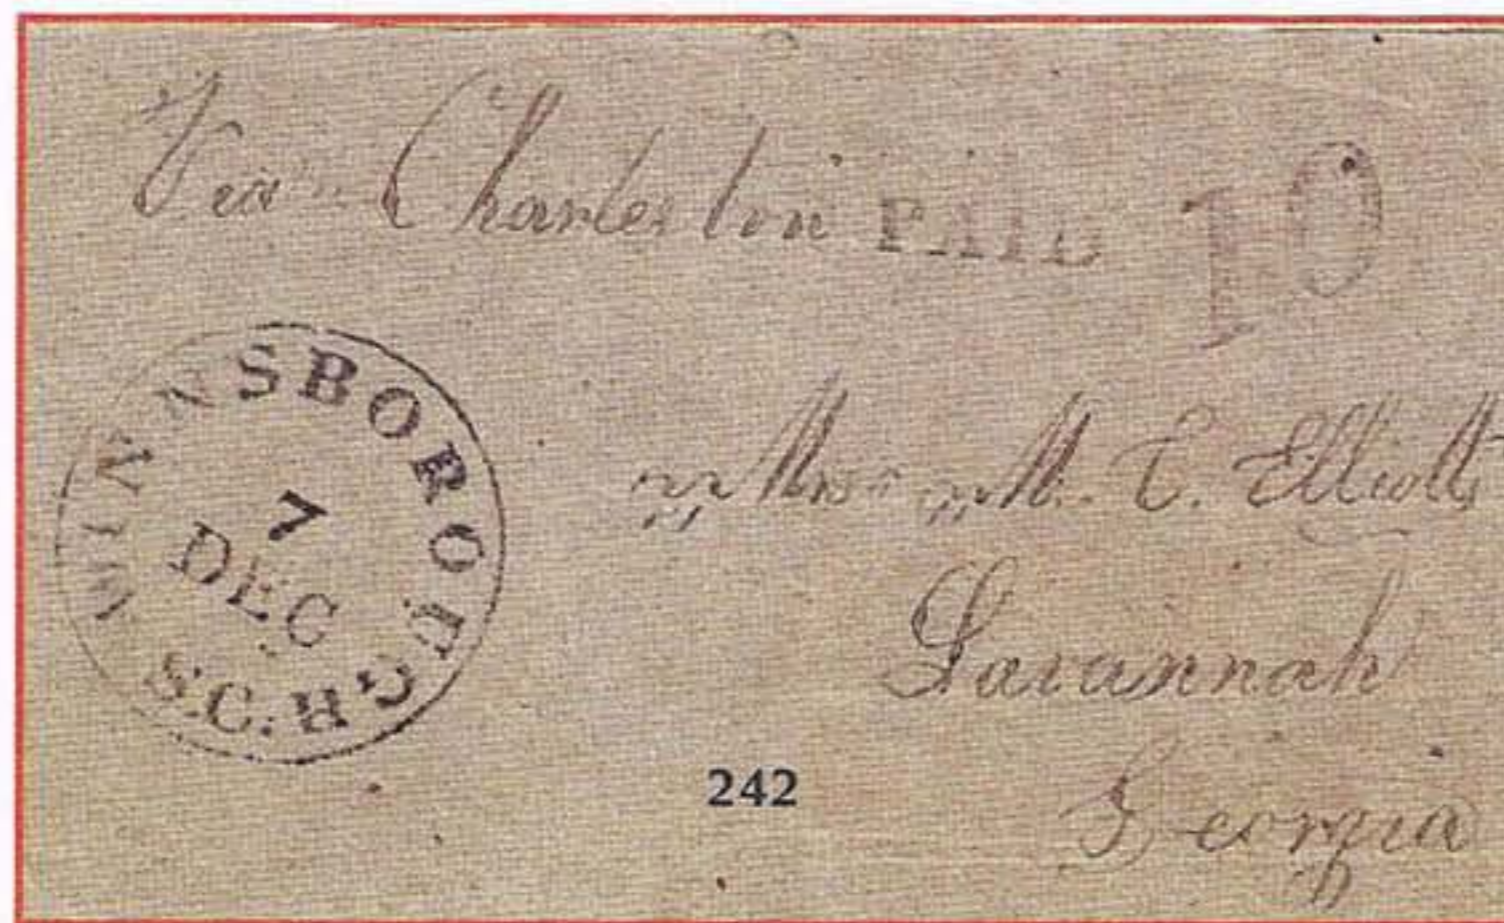 Via Charleston PAID 10
WINNSBOROUGH S.C.
7
DEC
Mrs. M. E. Elliott
Savannah
Georgia
242